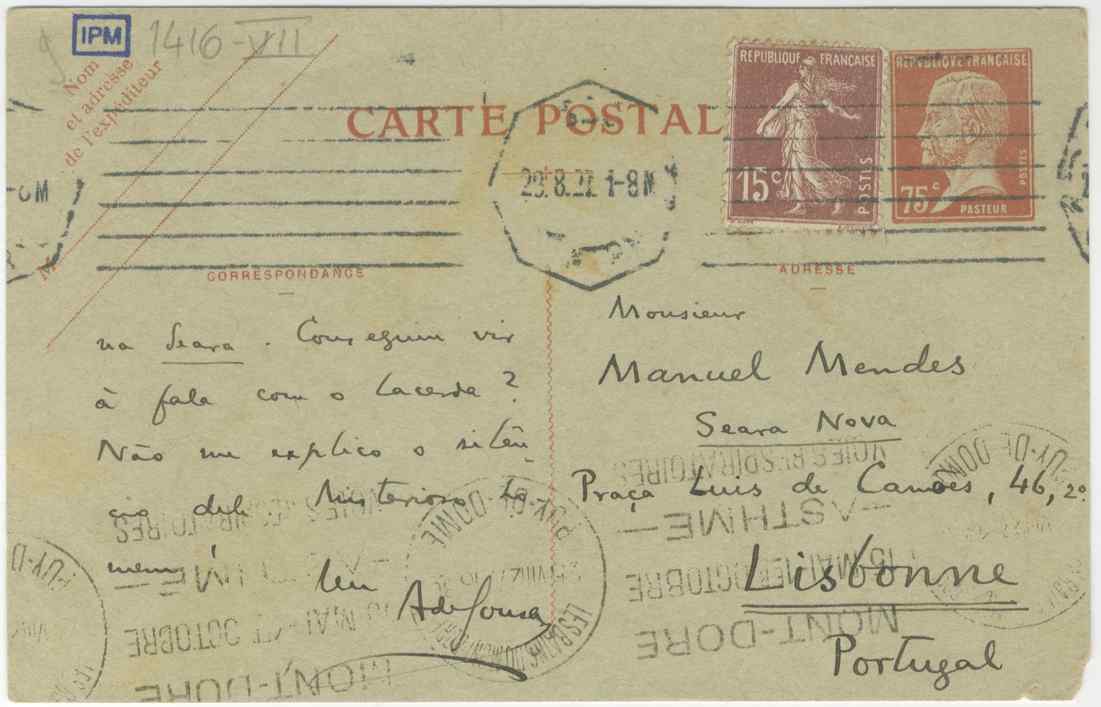 IPM
1416-VII
Nom
et adresse
de l'expéditeur
CARTE POSTALE
REPUBLIQUE FRANÇAISE
15c
POSTES
REPUBLIQUE FRANÇAISE
75c
PASTEUR
POSTES
29.8.27 1-8M
CORRESPONDANCE
na Seara. Conseguiu vir
à fala com o Lacerda?
Não me explico o silên
cio dele. Misterioso ho
mem!
Um
AdeSousa
ADRESSE
Monsieur
Manuel Mendes
Seara Nova
Praça Luis de Camões, 46, 2º
Lisbonne
Portugal
VOIES RESPIRATOIRES
—ASTHME—
15 MAI-1ER OCTOBRE
MONT-DORE
PUY-DE-DOME
VOIES RESPIRATOIRES
15 MAI-1ER OCTOBRE
MONT-DORE
PUY-DE DOME